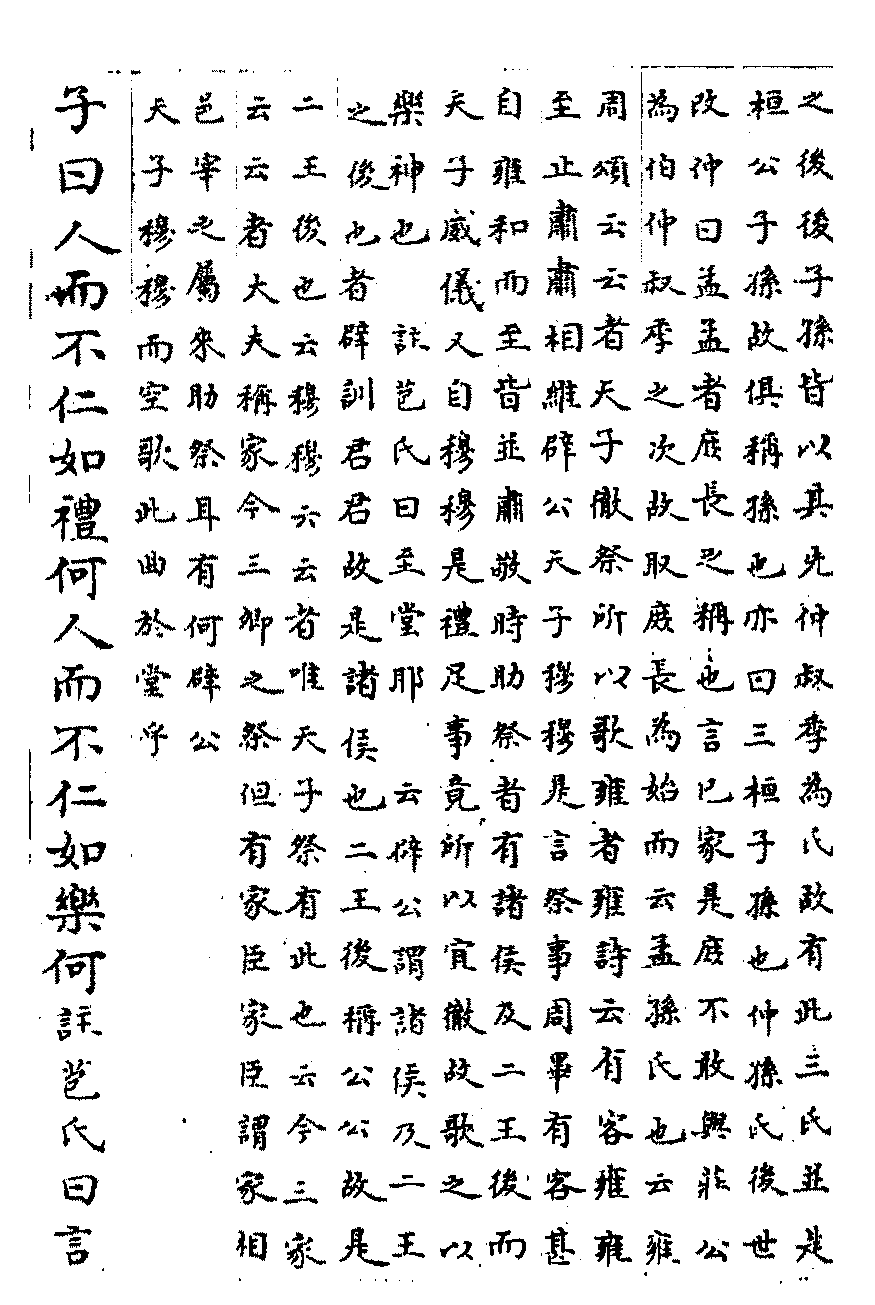 之後後子孫皆以其先仲叔季為氏故有此三氏並是
桓公子孫故俱稱孫也亦曰三桓子孫也仲孫氏後世
改仲曰孟孟者庶長之稱也言己家是庶不敢與莊公
為伯仲叔季之次故取庶長為始而云孟孫氏也云雍
周頌云云者天子徹祭所以歌雍者雍詩云有容雍雍
至止肅肅相維辟公天子穆穆是言祭事周畢有客甚
自雍和而至皆並肅敬時助祭者有諸侯及二王後而
天子威儀又自穆穆是禮足事竟所以宜徹故歌之以
樂神也 註苞氏曰至堂耶 云辟公謂諸侯及二王
之後也者辟訓君君故是諸侯也二王後稱公公故是
二王後也云穆穆云云者唯天子祭有此也云今三家
云云者大夫稱家今三卿之祭但有家臣家臣謂家相
邑宰之屬來助祭耳有何辟公
天子穆穆而空歌此曲於堂乎
子曰人而不仁如禮何人而不仁如樂何註苞氏曰言